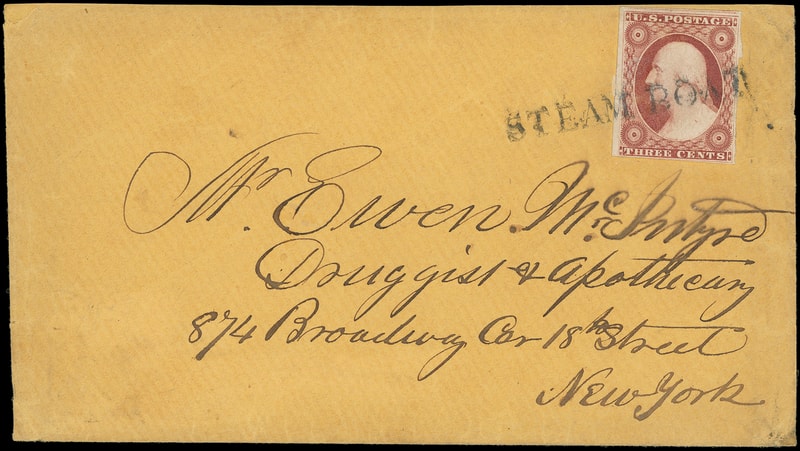 U.S. POSTAGE
THREE CENTS
STEAM BOAT
Mr. Ewen McIntyre
Druggist & Apothecary
874 Broadway Cor 18th Street
New York